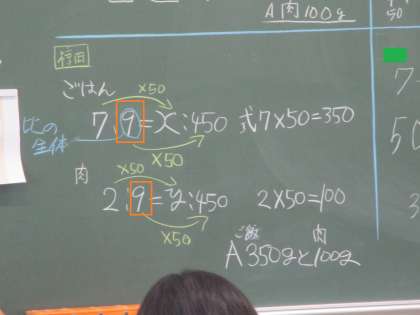 A 肉100g
ごはん
×50
7:9=x:450 式7×50=350
比の
全体
×50
肉
×50
2:9=y:450 2×50=100
×50
肉
A 350gと100g